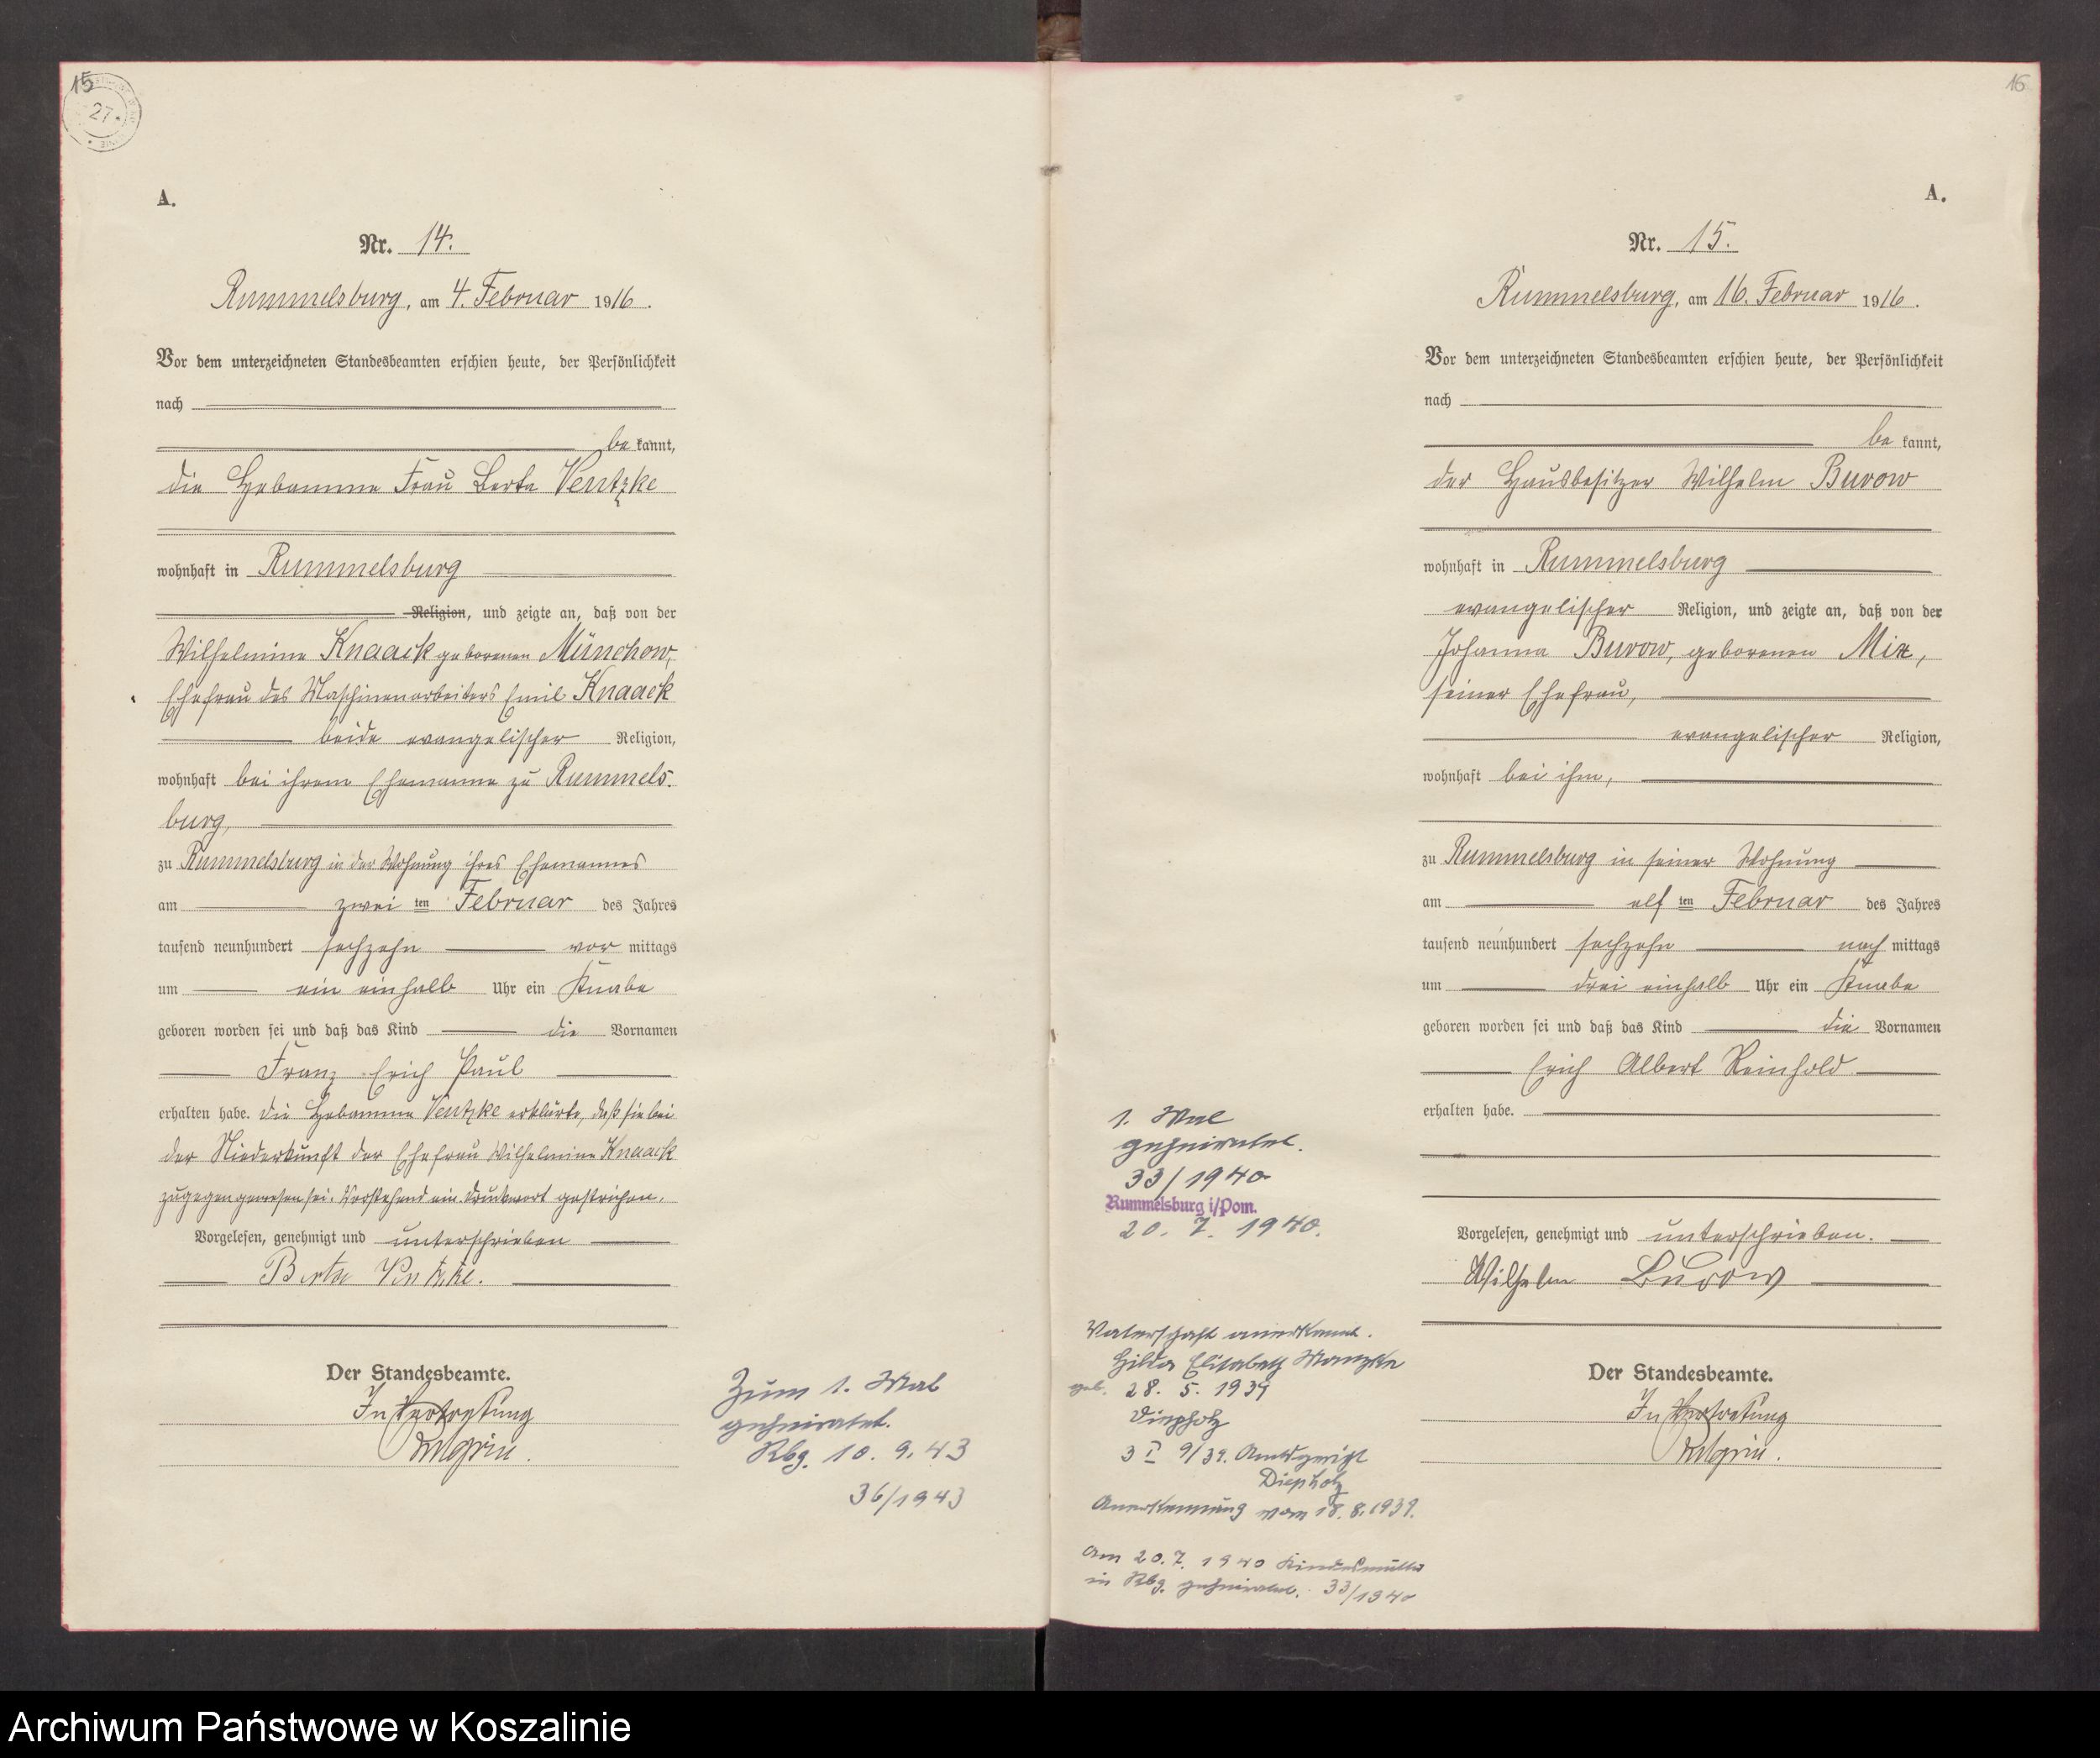 15
27
A.
Nr. 14.
Rummelsburg, am 4. Februar 1916.
Vor dem unterzeichneten Standesbeamten erschien heute, der Persönlichkeit
nach
be kannt,
die Hebamme Frau Berta Ventzke
wohnhaft in Rummelsburg
Religion, und zeigte an, daß von der
Wilhelmine Knaack geborenen Münchow,
Ehefrau des Maschinenarbeiters Emil Knaack
beide evangelischer Religion,
wohnhaft bei ihrem Ehemanne zu Rummels-
burg,
zu Rummelsburg in der Wohnung ihres Ehemannes
am zwei ten Februar des Jahres
tausend neunhundert sechzehn vor mittags
um ein einhalb Uhr ein Knabe
geboren worden sei und daß das Kind die Vornamen
Franz Erich Paul
erhalten habe. Die Hebamme Ventzke erklärte, daß sie bei
der Niederkunft der Ehefrau Wilhelmine Knaack
zugegen gewesen sei. Vorstehend ein Druckwort gestrichen.
Vorgelesen, genehmigt und unterschrieben
Berta Ventzke.
Der Standesbeamte.
In Vertretung
Zum 1. Mal
geheiratet.
Rbg. 10. 9. 43
36/1943
16
A.
Nr. 15.
Rummelsburg, am 16. Februar 1916.
Vor dem unterzeichneten Standesbeamten erschien heute, der Persönlichkeit
nach
be kannt,
der Hausbesitzer Wilhelm Burow
wohnhaft in Rummelsburg
evangelischer Religion, und zeigte an, daß von der
Johanna Burow, geborenen Mix,
seiner Ehefrau,
evangelischer Religion,
wohnhaft bei ihm,
zu Rummelsburg in seiner Wohnung
am elf ten Februar des Jahres
tausend neunhundert sechzehn nach mittags
um drei einhalb Uhr ein Knabe
geboren worden sei und daß das Kind die Vornamen
Erich Albert Reinhold
erhalten habe.
Vorgelesen, genehmigt und unterschrieben.
Wilhelm Burow
Der Standesbeamte.
In Vertretung
1. Mal
geheiratet.
33/1940
Rummelsburg i/Pom.
20. 7. 1940.
Vaterschaft anerkannt.
Hilda Elisabeth
geb. 28. 5. 1939
Diepholz
3 I 9/39. Amtsgericht
Diepholz
Anerkennung vom 18. 8. 1939.
Am 20. 7. 1940 Kindesmutter
in Rbg. geheiratet. 33/1940
Archiwum Państwowe w Koszalinie